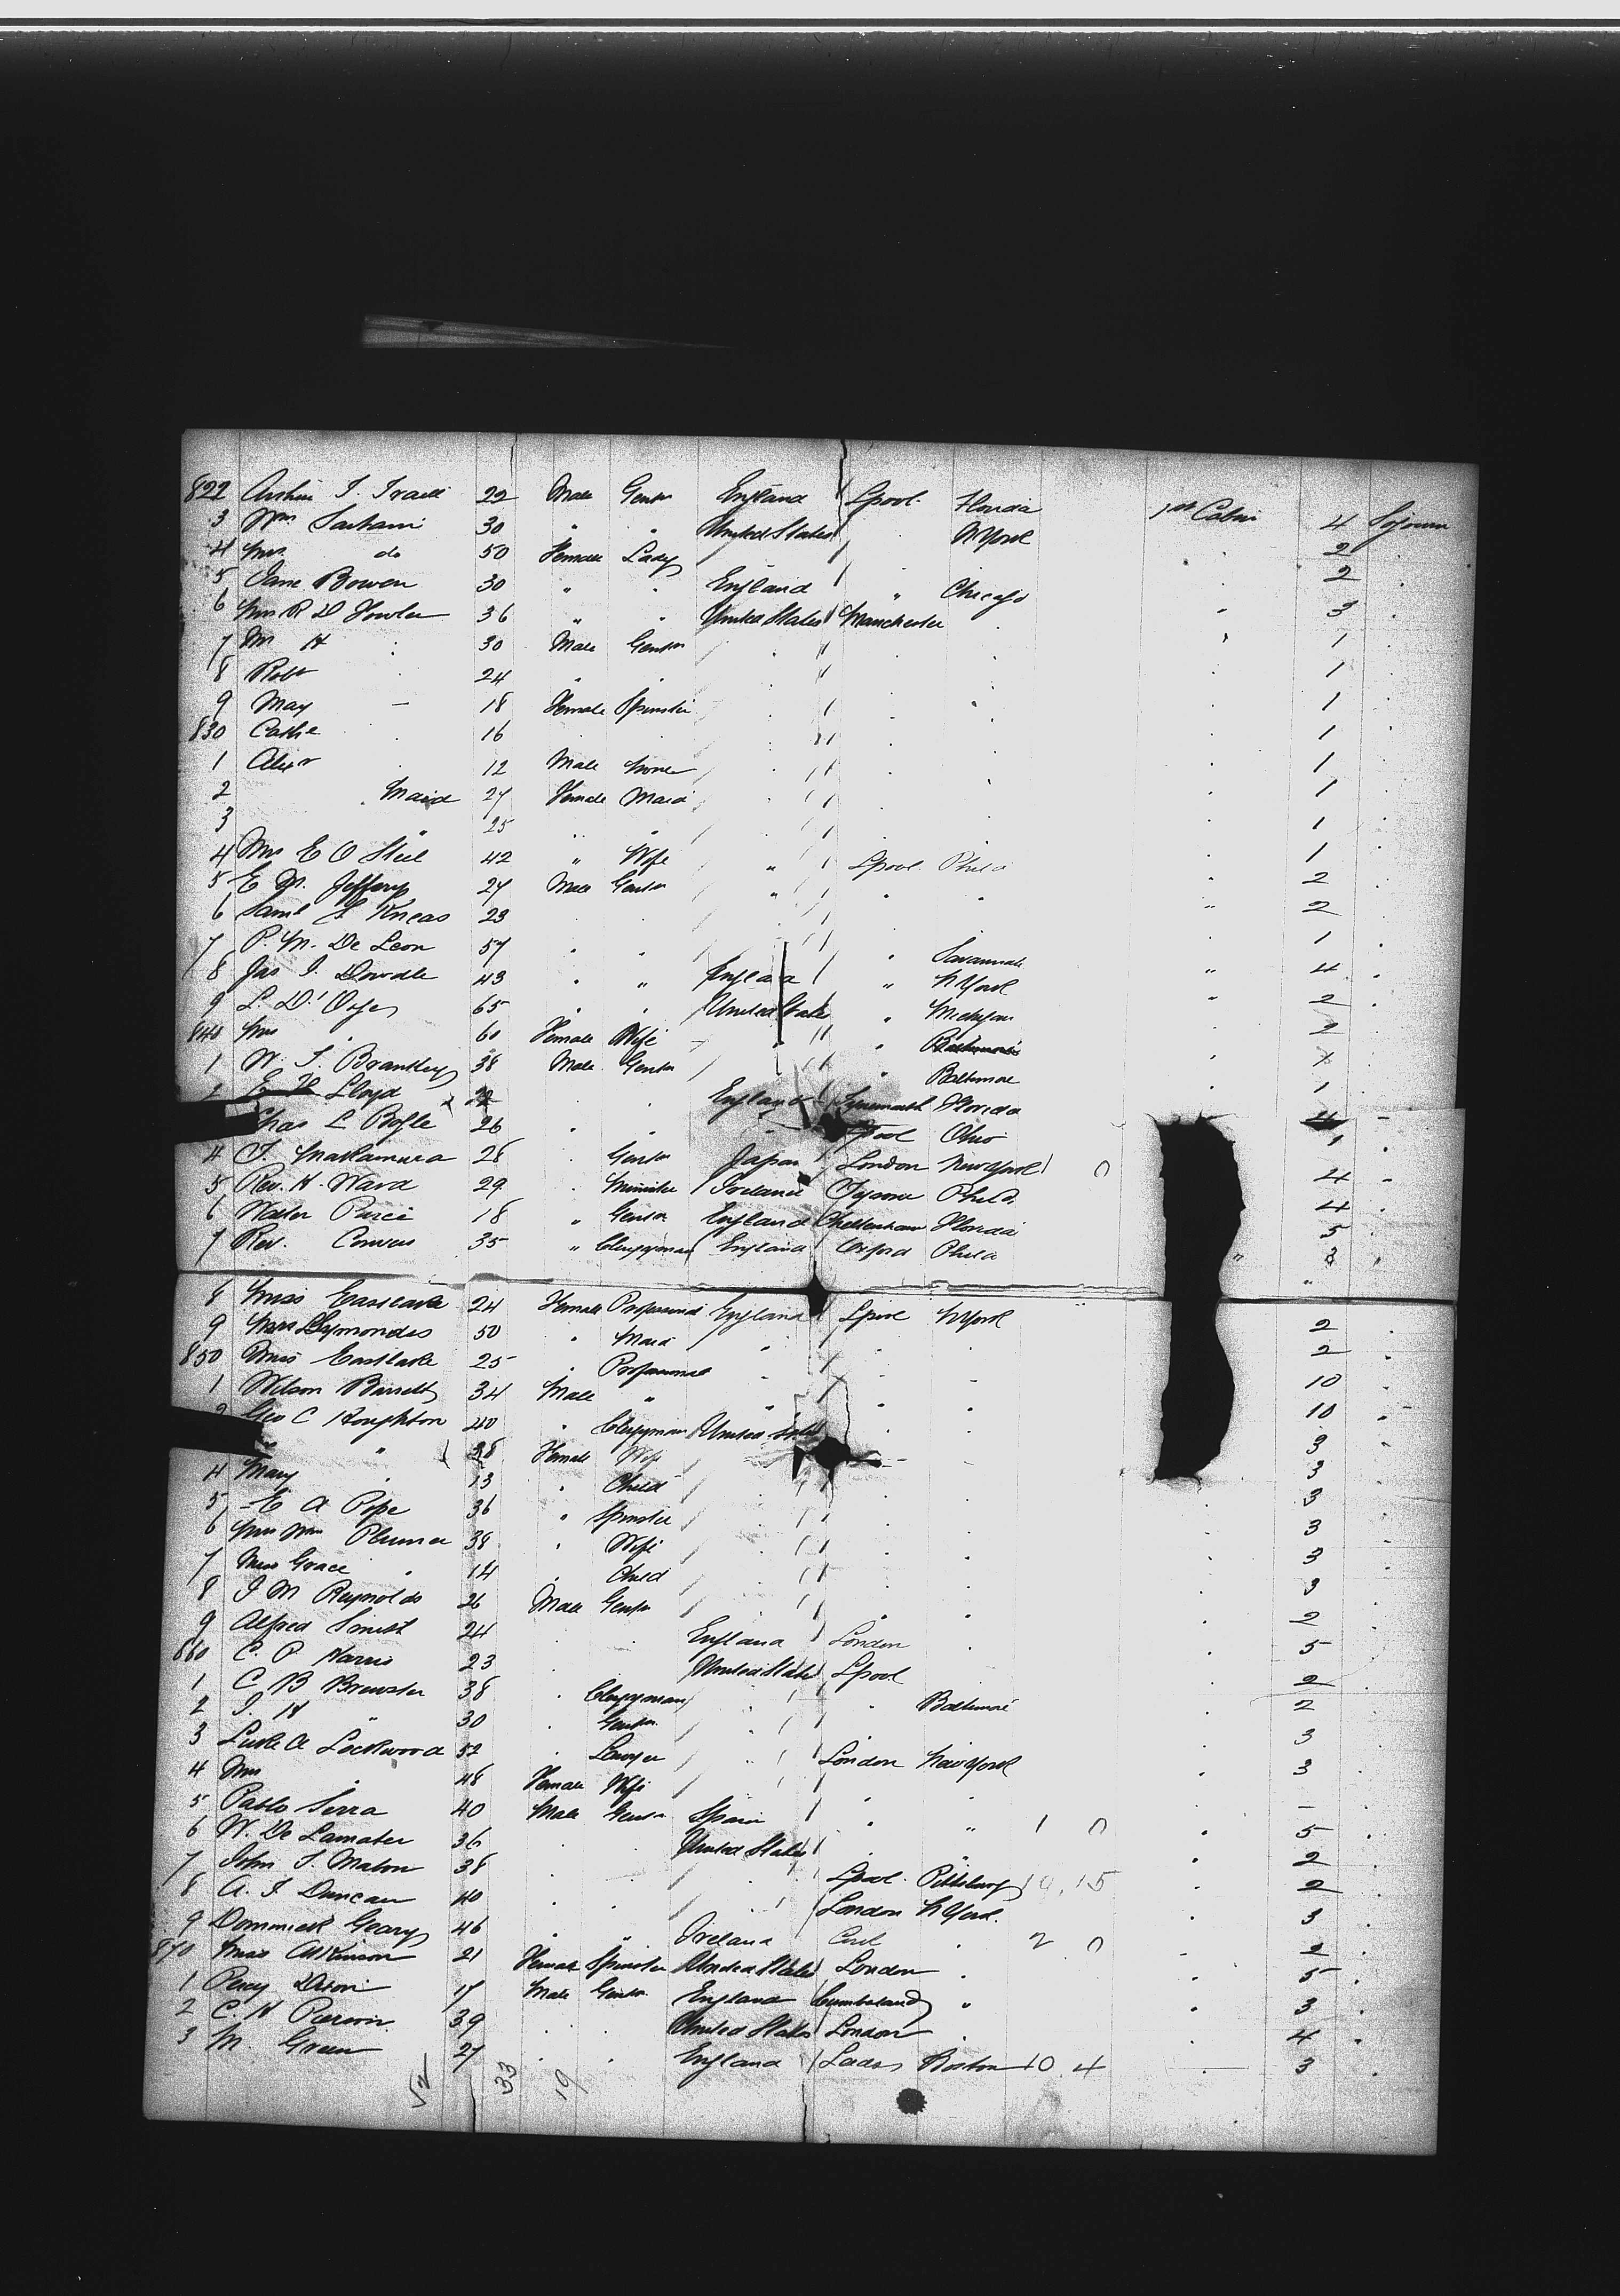 822 22 Male Gentn England Lpool. Florida 1st Cabin 4 Sojourn
3 Wm 30 " " United States N York 2
4 Mrs do 50 Female Lady 2
5 Jane Bowen 30 " " England " Chicago 3
6 Mrs R D Fowler 36 " " United States Manchester 1
7 Mr H 30 Male Gentn 1
8 Robt 24 " 1
9 May — 18 Female Spinster 1
830 16 1
1 Alexr 12 Male None 1
2 Maid 27 Female Maid 1
3 " 25 " " 1
4 Mrs E O Steel 42 " Wife " Lpool. Phila 2
5 E M. Jeffery 27 Male Gentn " 2
6 Saml J Kneas 23 1
7 P. M. De Leon 57 " Savannah 4
8 Jas I. Dowdle 43 " " England " N York 2
9 65 United States " Michigan 2
840 Mrs 60 Female Wife " " Baltimore
1 W. T. Brantley 38 Male Gentn " Baltimore 1
2 Lloyd 22 England Florida
Chas L Bogle 26 Lpool Ohio 1
4 T. Nakamura 28 Gentn Japan London New York 0 4
5 Rev. H. Ward 29 Minister Ireland Phila 4
6 Walter 18 " Gentn England Cheltenham Florida 5
7 Rev. 35 " Clergyman England Oxford Phila " 3
8 Miss Eastlake 24 Female Professional England Lpool N York 2
9 50 " Maid 2
850 Miss Eastlake 25 Professional 10
1 Wilson Barrett 34 Male " 10
Geo C Houghton 40 Clergyman United States 3
" 38 Female Wife 3
4 Mary 13 Child 3
5 E A Pope 36 Spinster 3
6 Mrs Wm Plumer 38 Wife 3
7 Miss Grace 14 Child 3
8 J M Reynolds 26 Male Gentn 2
9 Alfred 24 England London 5
860 C. P. Harris 23 United States Lpool 2
1 C B Brewster 38 Clergyman " Baltimore 2
2 J. H " 30 Gentn 3
3 Luke A Lockwood 52 Lawyer London New York 3
4 Mrs 48 Female Wife —
5 Pablo Serra 40 Male Gentn Spain " " 1 0 5
6 W. De Lamater 36 United States 2
7 John 38 Lpool. Pittsburg 15 2
8 A. J. Duncan 40 London N York. 3
9 Dominick Geary 46 Ireland Cork 2 0 2
870 Miss Atkinson 21 Female Spinster United States London 5
1 Percy Dixon 17 Male Gentn England Cumberland " 3
2 C. H 39 United States London 4
3 M. Green 27 England Leeds Boston 10 4 3
52 33 19